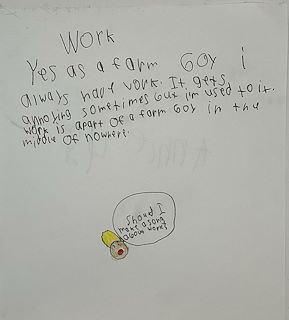 Work
Yes as a farm boy i
always have work. It gets
annoying sometimes but i'm used to it.
work is apart of a farm boy in the
middle of nowhere.
Shoud I
make a song
about work?